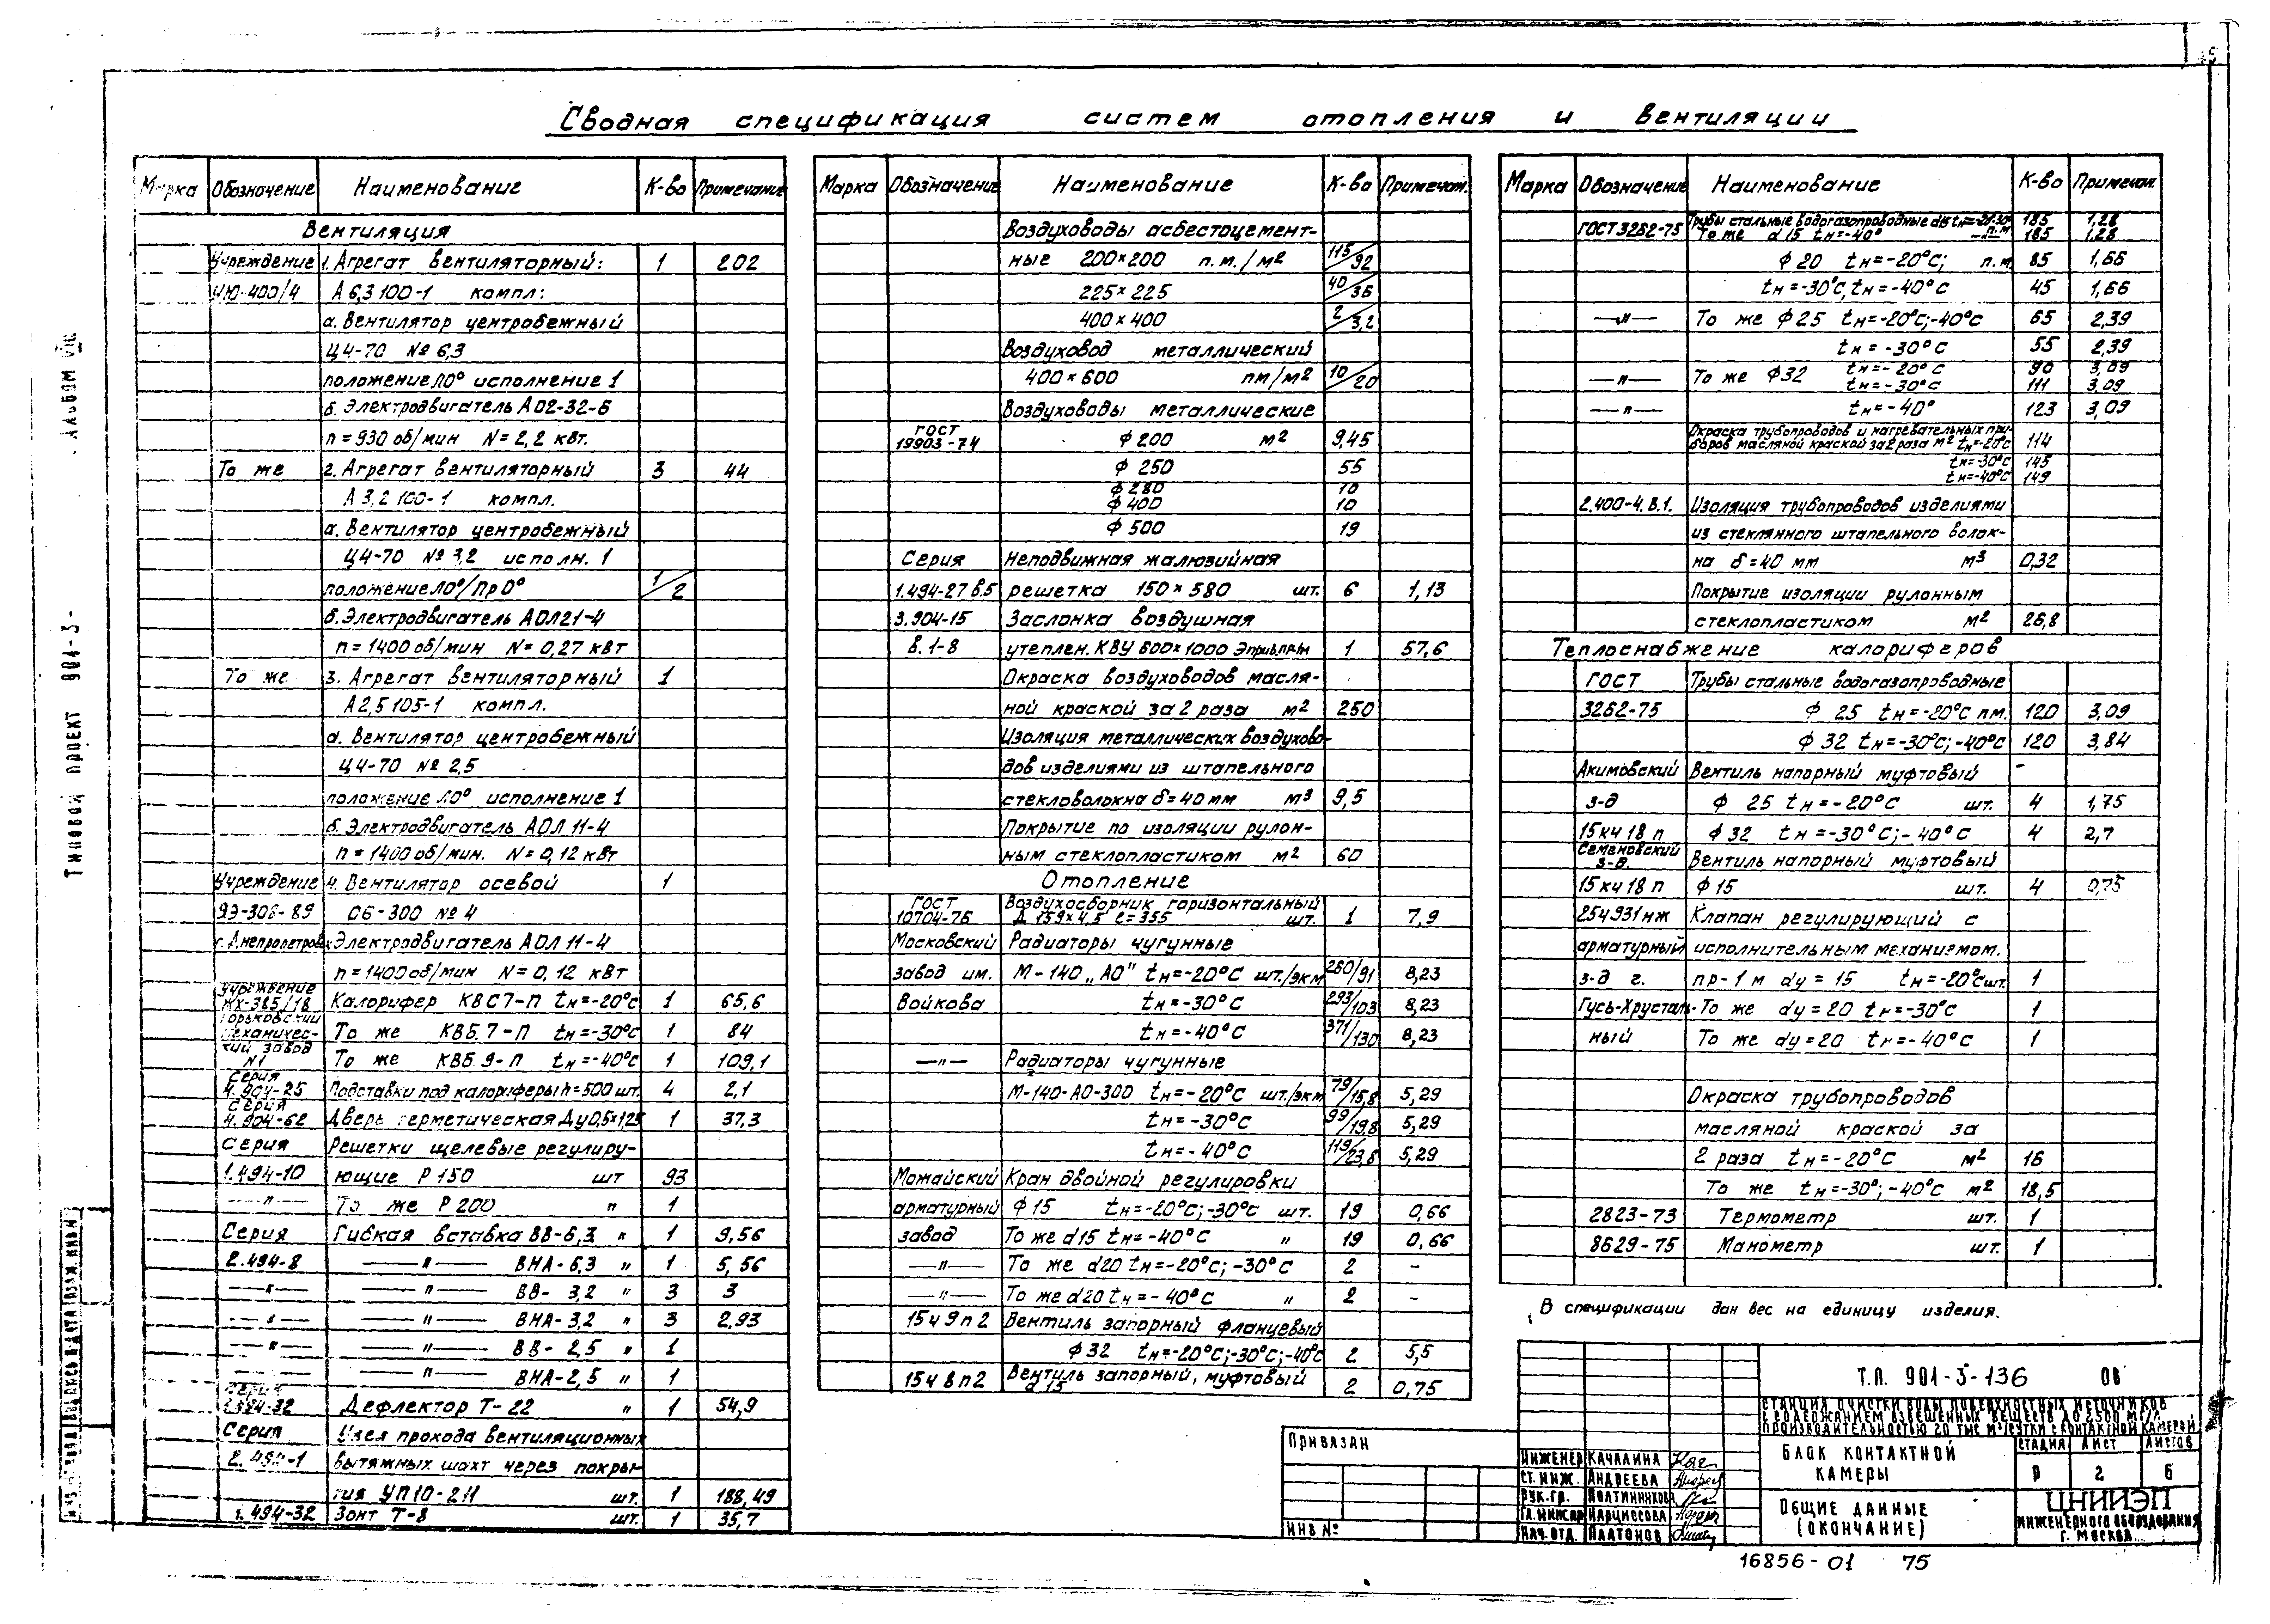 Сводная спецификация систем отопления и вентиляции
Марка Обозначение Наименование К-во Примечание
Вентиляция
Учреждение 1. Агрегат вентиляторный: 1 202
ЧЮ-400/4 А 6,3 100-1 компл:
а. Вентилятор центробежный
Ц4-70 № 6,3
положение Л0° исполнение 1
б. Электродвигатель АО2-32-6
n = 930 об/мин N = 2,2 квт.
То же 2. Агрегат вентиляторный 3 44
А 3,2 100-1 компл.
а. Вентилятор центробежный
Ц4-70 № 3,2 исполн. 1
положение Л0°/Пр0° 1/2
б. Электродвигатель АОЛ21-4
n = 1400 об/мин N = 0,27 квт
То же 3. Агрегат вентиляторный 1
А2,5 105-1 компл.
а. Вентилятор центробежный
Ц4-70 № 2,5
положение Л0° исполнение 1
б. Электродвигатель АОЛ 11-4
n = 1400 об/мин. N = 0,12 квт
Учреждение 4. Вентилятор осевой 1
ЯЭ-308-89 06-300 № 4
г. Днепропетровск Электродвигатель АОЛ 11-4
n = 1400 об/мин N = 0,12 квт
Учреждение
ЖХ-385/18 Калорифер КВС7-П tн=-20°С 1 65,6
Горьковский
механичес- То же КВБ.7-П tн=-30°С 1 84
кий завод
N1 То же КВБ.9-П tн=-40°С 1 109,1
Серия
4.904-25 Подставки под калориферы h=500 шт. 4 2,1
Серия
4.904-62 Дверь герметическая Ду0,5×1,25 1 37,3
Серия Решетки щелевые регулиру-
1.494-10 ющие Р 150 шт 93
—"— То же Р 200 " 1
Серия Гибкая вставка ВВ-6,3 " 1 9,56
2.494-8 —"— ВНА-6,3 " 1 5,56
—"— —"— ВВ-3,2 " 3 3
—"— —"— ВНА-3,2 " 3 2,93
—"— —"— ВВ-2,5 " 1
—"— ВНА-2,5 " 1
Серия
1.494-32 Дефлектор Т-22 " 1 54,9
Серия Узел прохода вентиляционных
2.494-1 вытяжных шахт через покры-
тия УП10-2Н шт. 1 188,49
1.494-32 Зонт Т-8 шт. 1 35,7
Марка Обозначение Наименование К-во Примечан.
Воздуховоды асбестоцемент-
ные 200×200 п.м./м2 115/92
225×225 40/36
400×400 2/3,2
Воздуховод металлический
400×600 пм/м2 10/20
Воздуховоды металлические
ГОСТ
19903-74 ф 200 м2 9,45
ф 250 55
ф 280 10
ф 400 10
ф 500 19
Серия Неподвижная жалюзийная
1.494-27 в.5 решетка 150×580 шт. 6 1,13
3.904-15 Заслонка воздушная
в.1-8 утеплен. КВУ 600×1000 Э прив. 1 57,6
Окраска воздуховодов масля-
ной краской за 2 раза м2 250
Изоляция металлических воздухово-
дов изделиями из штапельного
стекловолокна δ=40 мм м3 9,5
Покрытие по изоляции рулон-
ным стеклопластиком м2 60
Отопление
ГОСТ Воздухосборник горизонтальный
10704-76 Д 159×4,5 ℓ=355 шт. 1 7,9
Московский Радиаторы чугунные
завод им. М-140 „АО" tн=-20°С шт./экм 260/91 8,23
Войкова tн=-30°С 293/103 8,23
tн=-40°С 371/130 8,23
—"— Радиаторы чугунные
М-140-АО-300 tн=-20°С шт./экм 79/15,8 5,29
tн=-30°С 99/19,8 5,29
tн=-40°С 119/23,8 5,29
Можайский Кран двойной регулировки
арматурный ф 15 tн=-20°С; -30°С шт. 19 0,66
завод То же d15 tн=-40°С " 19 0,66
—"— То же d20 tн=-20°С; -30°С 2 -
—"— То же d20 tн=-40°С " 2 -
15ч9п2 Вентиль запорный фланцевый
ф 32 tн=-20°С; -30°С; -40°С 2 5,5
15ч8п2 Вентиль запорный, муфтовый
d 15 2 0,75
Марка Обозначение Наименование К-во Примечан.
ГОСТ 3262-75 Трубы стальные водогазопроводные d15 tн=-20-30° п.м 185 1,28
То же d 15 tн=-40° —"— 185 1,28
ф 20 tн=-20°С; п.м. 85 1,66
tн=-30°С, tн=-40°С 45 1,66
—"— То же ф 25 tн=-20°С; -40°С 65 2,39
tн=-30°С 55 2,39
—"— То же ф32 tн=-20°С 90 3,09
tн=-30°С 111 3,09
—"— tн=-40° 123 3,09
Окраска трубопроводов и нагревательных при-
боров масляной краской за 2 раза м2 tн=-20°С 114
tн=-30°С 145
tн=-40°С 149
2.400-4.В.1. Изоляция трубопроводов изделиями
из стеклянного штапельного волок-
на δ=40 мм м3 0,32
Покрытие изоляции рулонным
стеклопластиком м2 26,8
Теплоснабжение калориферов
ГОСТ Трубы стальные водогазопроводные
3262-75 ф 25 tн=-20°С пм. 120 3,09
ф 32 tн=-30°С; -40°С 120 3,84
Акимовский Вентиль напорный муфтовый -
з-д ф 25 tн=-20°С шт. 4 1,75
15кч18п ф 32 tн=-30°С; -40°С 4 2,7
Семеновский
з-в. Вентиль напорный муфтовый
15кч18п ф 15 шт. 4 0,75
25ч931нж Клапан регулирующий с
арматурный исполнительным механизмом.
з-д г. пр-1м dу=15 tн=-20°С шт. 1
Гусь-Хрусталь- То же dу=20 tн=-30°С 1
ный То же dу=20 tн=-40°С 1
Окраска трубопроводов
масляной краской за
2 раза tн=-20°С м2 16
То же tн=-30°; -40°С м2 18,5
2823-73 Термометр шт. 1
8629-75 Манометр шт. 1
В спецификации дан вес на единицу изделия.
Т.П. 901-3-136 ОВ
СТАНЦИЯ ОЧИСТКИ ВОДЫ ПОВЕРХНОСТНЫХ ИСТОЧНИКОВ
С СОДЕРЖАНИЕМ ВЗВЕШЕННЫХ ВЕЩЕСТВ ДО 2500 МГ/Л
ПРОИЗВОДИТЕЛЬНОСТЬЮ 20 ТЫС М³/СУТКИ С КОНТАКТНОЙ КАМЕРОЙ
БЛОК КОНТАКТНОЙ КАМЕРЫ
СТАДИЯ ЛИСТ ЛИСТОВ
Р 2 6
ОБЩИЕ ДАННЫЕ
(ОКОНЧАНИЕ)
ЦНИИЭП
ИНЖЕНЕРНОГО ОБОРУДОВАНИЯ
Г. МОСКВА
ИНЖЕНЕР КАЧАЛИНА
СТ. ИНЖ. АНДРЕЕВА
РУК. ГР. ПОЛТИННИКОВА
ГЛ. ИНЖ. ПР НАРЦИССОВА
НАЧ. ОТД. ПЛАТОНОВ
ПРИВЯЗАН
ИНВ №
16856-01 75
ТИПОВОЙ ПРОЕКТ 901-3-
АЛЬБОМ VIII